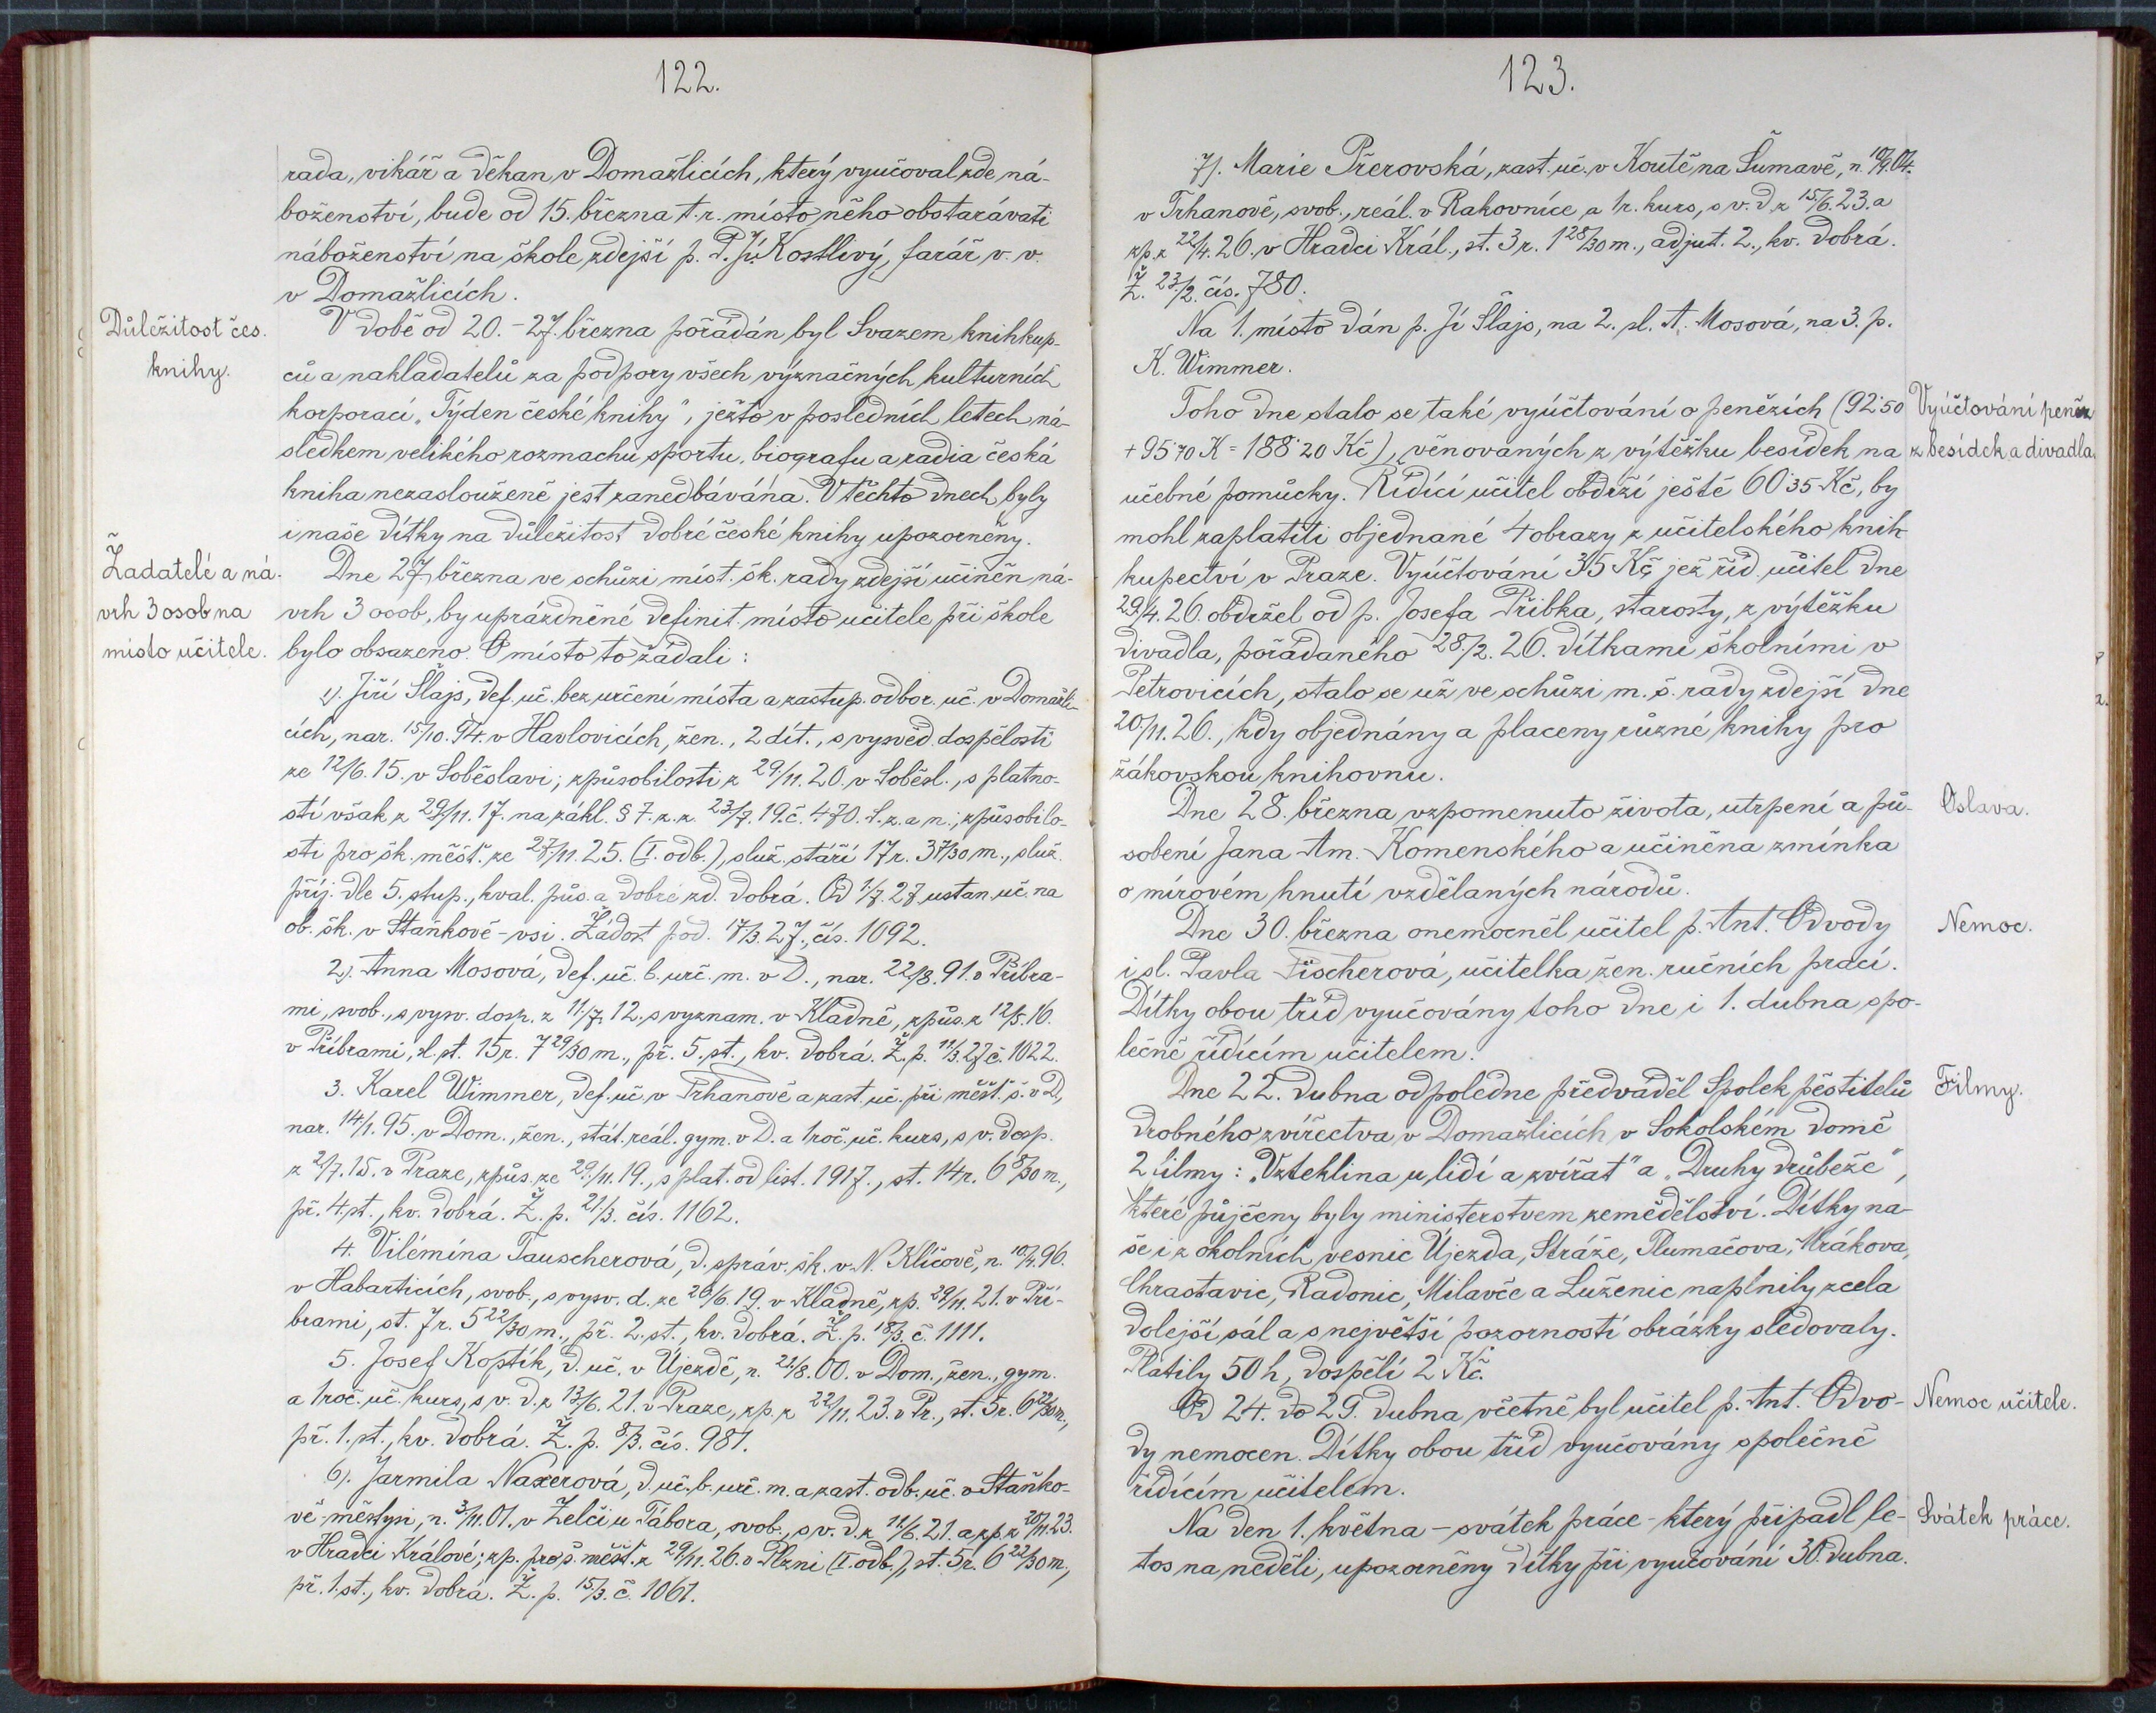 122.
rada, vikář a děkan v Domažlicích, který vyučoval zde ná-
boženství, bude od 15. března t. r. místo něho obstarávati
náboženství na škole zdejší p. P. Jí. Kostlivý, farář v. v.
v Domažlicích.
Důležitost čes.
knihy.
V době od 20. - 27. března pořádán byl Svazem knihkup-
ců a nakladatelů za podpory všech význačných kulturních
korporací „Týden české knihy", ježto v posledních letech ná-
sledkem velikého rozmachu sportu, biografu a radia česká
kniha nezaslouženě jest zanedbávána. V těchto dnech byly
i naše dítky na důležitost dobré české knihy upozorněny.
Žadatelé a ná-
vrh 3 osob na
místo učitele.
Dne 27. března ve schůzi míst. šk. rady zdejší učiněn ná-
vrh 3 osob, by uprázdněné definit. místo učitele při škole
bylo obsazeno. O místo to žádali:
1). Jiří Šlajs, def. uč. bez určení místa a zastup. odbor. uč. v Domažli-
cích, nar. 15/10. 94. v Havlovicích, žen., 2 dít., s vysvěd. dospělosti
ze 12/6. 15. v Soběslavi; způsobilosti z 29./11. 20. v Soběsl., s platno-
stí však z 29/11. 17. na zákl. § 7. z. z. 23/7. 19. č. 470. S. z. a n.; způsobilo-
sti pro šk. měšť. ze 27/11. 25. (I. odb.), služ. stáří 17 r. 3 7/30 m., služ.
příj. dle 5. stup., kval. půs. a dobré zd. dobrá. Od 1/7. 27. ustan. uč. na
ob. šk. v Staňkově-vsi. Žádost pod. 17/3. 27., čís. 1092.
2). Anna Mosová, def. uč. b. urč. m. v D., nar. 22/8. 91. v Příbra-
mi, svob., s vysv. dosp. z 11./7. 12. s vyznam. v Kladně, způs. z 12/5. 16.
v Příbrami, sl. st. 15 r. 7 29/30 m., př. 5. st., kv. dobrá. Ž. p. 11/3. 27. č. 1022.
3. Karel Wimmer, def. uč. v Trhanově a zast. uč. při měšť. š. v D.,
nar. 14/1. 95. v Dom., žen., stát. reál. gym. v D. a 1 roč. uč. kurs, s v. dosp.
z 2/7. 15. v Praze, způs. ze 29./11. 19., s plat. od list. 1917., st. 14 r. 6 8/30 m.,
př. 4. st., kv. dobrá. Ž. p. 21./3. čís. 1162.
4. Vilémína Tauscherová, d. správ. šk. v N. Klíčově, n. 10/2. 96.
v Habarticích, svob., s vysv. d. ze 26/6. 19. v Kladně, zp. 29/11. 21. v Pří-
brami, st. 7 r. 5 22/30 m., př. 2. st., kv. dobrá. Ž. p. 18/3. č. 1111.
5. Josef Koptík, d. uč. v Újezdě, n. 21./8. 00. v Dom., žen., gym.
a 1 roč. uč. kurs, s v. d. z 13/6. 21. v Praze, zp. z 22/11. 23. v Pr., st. 5 r. 6 22/30 m.,
př. 1. st., kv. dobrá. Ž. p. 8/3. čís. 981.
6). Jarmila Naxerová, d. uč. b. urč. m. a zast. odb. uč. v Staňko-
vě-městysi, n. 3/11. 01. v Želči u Tábora, svob., s v. d. z 11./6. 21. a zp. z 20/11. 23.
v Hradci Králové; zp. pro š. měšť. z 29/11. 26. v Plzni (I. odb.), st. 5 r. 6 22/30 m.,
př. 1. st., kv. dobrá. Ž. p. 15/3. č. 1061.
123.
7). Marie Přerovská, zast. uč. v Koutě na Šumavě, n. 10/9. 04.
v Trhanově, svob., reál. v Rakovníce, a 1 r. kurs, s v. d. z 15./6. 23. a
zp. z 22/4. 26. v Hradci Král., st. 3 r. 1 28/30 m., adjut. 2., kv. dobrá.
Ž. 23./2. čís. 780.
Na 1. místo dán p. Jí Šlajs, na 2. sl. A. Mosová, na 3. p.
K. Wimmer.
Toho dne stalo se také vyúčtování o penězích (92·50
+ 95·70 K = 188·20 Kč), věnovaných z výtěžku besídek na
učebné pomůcky. Řídící učitel obdrží ještě 60·35 Kč, by
mohl zaplatiti objednané 4 obrazy z učitelského knih-
kupectví v Praze. Vyúčtování 35 Kč, jež říd. učitel dne
29/4. 26. obdržel od p. Josefa Přibka, starosty, z výtěžku
divadla, pořádaného 28./2. 26. dítkami školními v
Petrovicích, stalo se už ve schůzi m. š. rady zdejší dne
20/11. 26., kdy objednány a placeny různé knihy pro
žákovskou knihovnu.
Vyúčtování peněz
z besídek a divadla.
Dne 28. března vzpomenuto života, utrpení a pů-
sobení Jana Am. Komenského a učiněna zmínka
o mírovém hnutí vzdělaných národů.
Oslava.
Dne 30. března onemocněl učitel p. Ant. Odvody
i sl. Pavla Fischerová, učitelka žen. ručních prací.
Dítky obou tříd vyučovány toho dne i 1. dubna spo-
lečně řídícím učitelem.
Nemoc.
Dne 22. dubna odpoledne předváděl Spolek pěstitelů
drobného zvířectva v Domažlicích v Sokolském domě
2 filmy: „Vzteklina u lidí a zvířat" a „Druhy drůbeže",
které půjčeny byly ministerstvem zemědělství. Dítky na-
še i z okolních vesnic Újezda, Stráže, Tlumačova, Mrákova,
Chrastavic, Radonic, Milavče a Luženic naplnily zcela
dolejší sál a s největší pozorností obrázky sledovaly.
Platily 50 h, dospělí 2 Kč.
Filmy.
Od 24. do 29. dubna včetně byl učitel p. Ant. Odvo-
dy nemocen. Dítky obou tříd vyučovány společně
řídícím učitelem.
Nemoc učitele.
Na den 1. května - svátek práce - který připadl le-
tos na neděli, upozorněny dítky při vyučování 30. dubna.
Svátek práce.